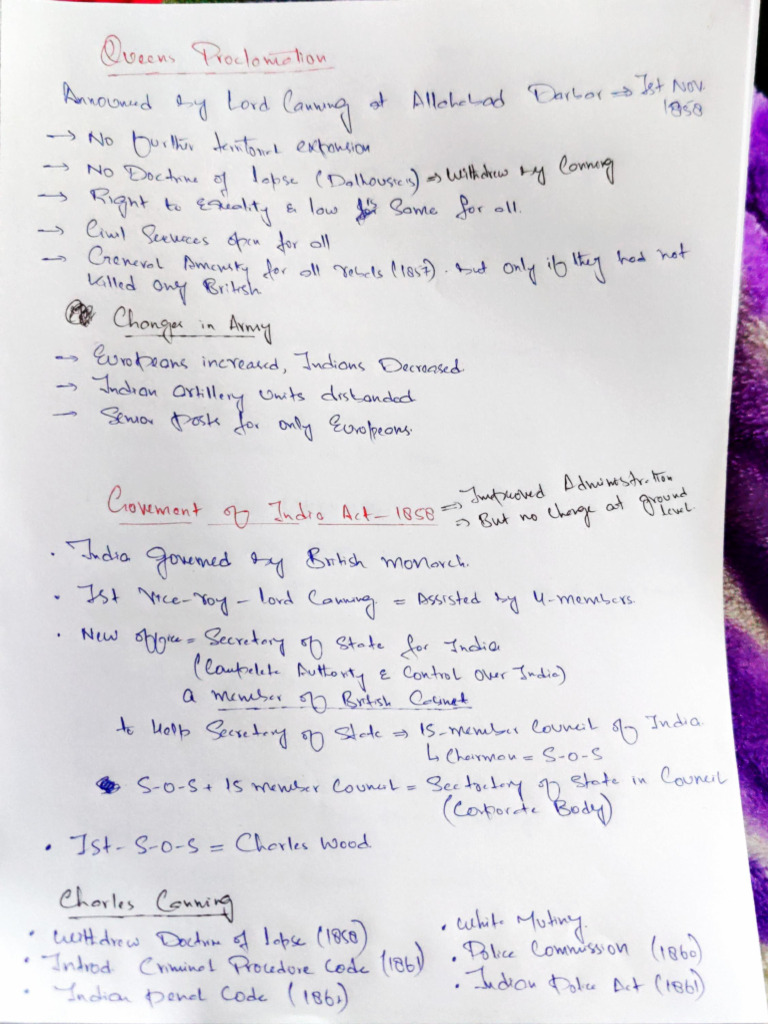 Queens Proclomation
Announced by Lord Canning at Allahabad Darbar ⇒ Ist Nov. 1858
→ No further territorial expansion
→ No Doctrine of lapse (Dalhousie's) ⇒ Withdrew by Canning
→ Right to Equality & law is Same for all.
→ Civil Services open for all
→ General Amensty for all rebels (1857). but only if they had not
killed any British
Changes in Army
→ Europeans increased, Indians Decreased.
→ Indian artillery units disbanded
→ Senior posts for only Europeans.
Goverment of India Act - 1858 ⇒ Improved Administration
⇒ But no change at ground level.
• India governed by British monarch.
• Ist Vice-roy - lord Canning = Assisted by 4-members.
• New office = Secretary of State for India
(Complete Authority & Control over India)
a member of British Cabinet
to Help Secretary of State ⇒ 15-member Council of India.
↳ Chairman = S-O-S
S-O-S + 15 member Council = Secretary of State in Council
(Corporate Body)
• Ist - S-O-S = Charles Wood
Charles Canning
• Withdrew Doctrine of lapse (1858)
• Introd. Criminal Procedure Code (1861)
• Indian penal Code (1861)
• White Mutiny.
• Police Commission (1860)
• Indian Police Act (1861)